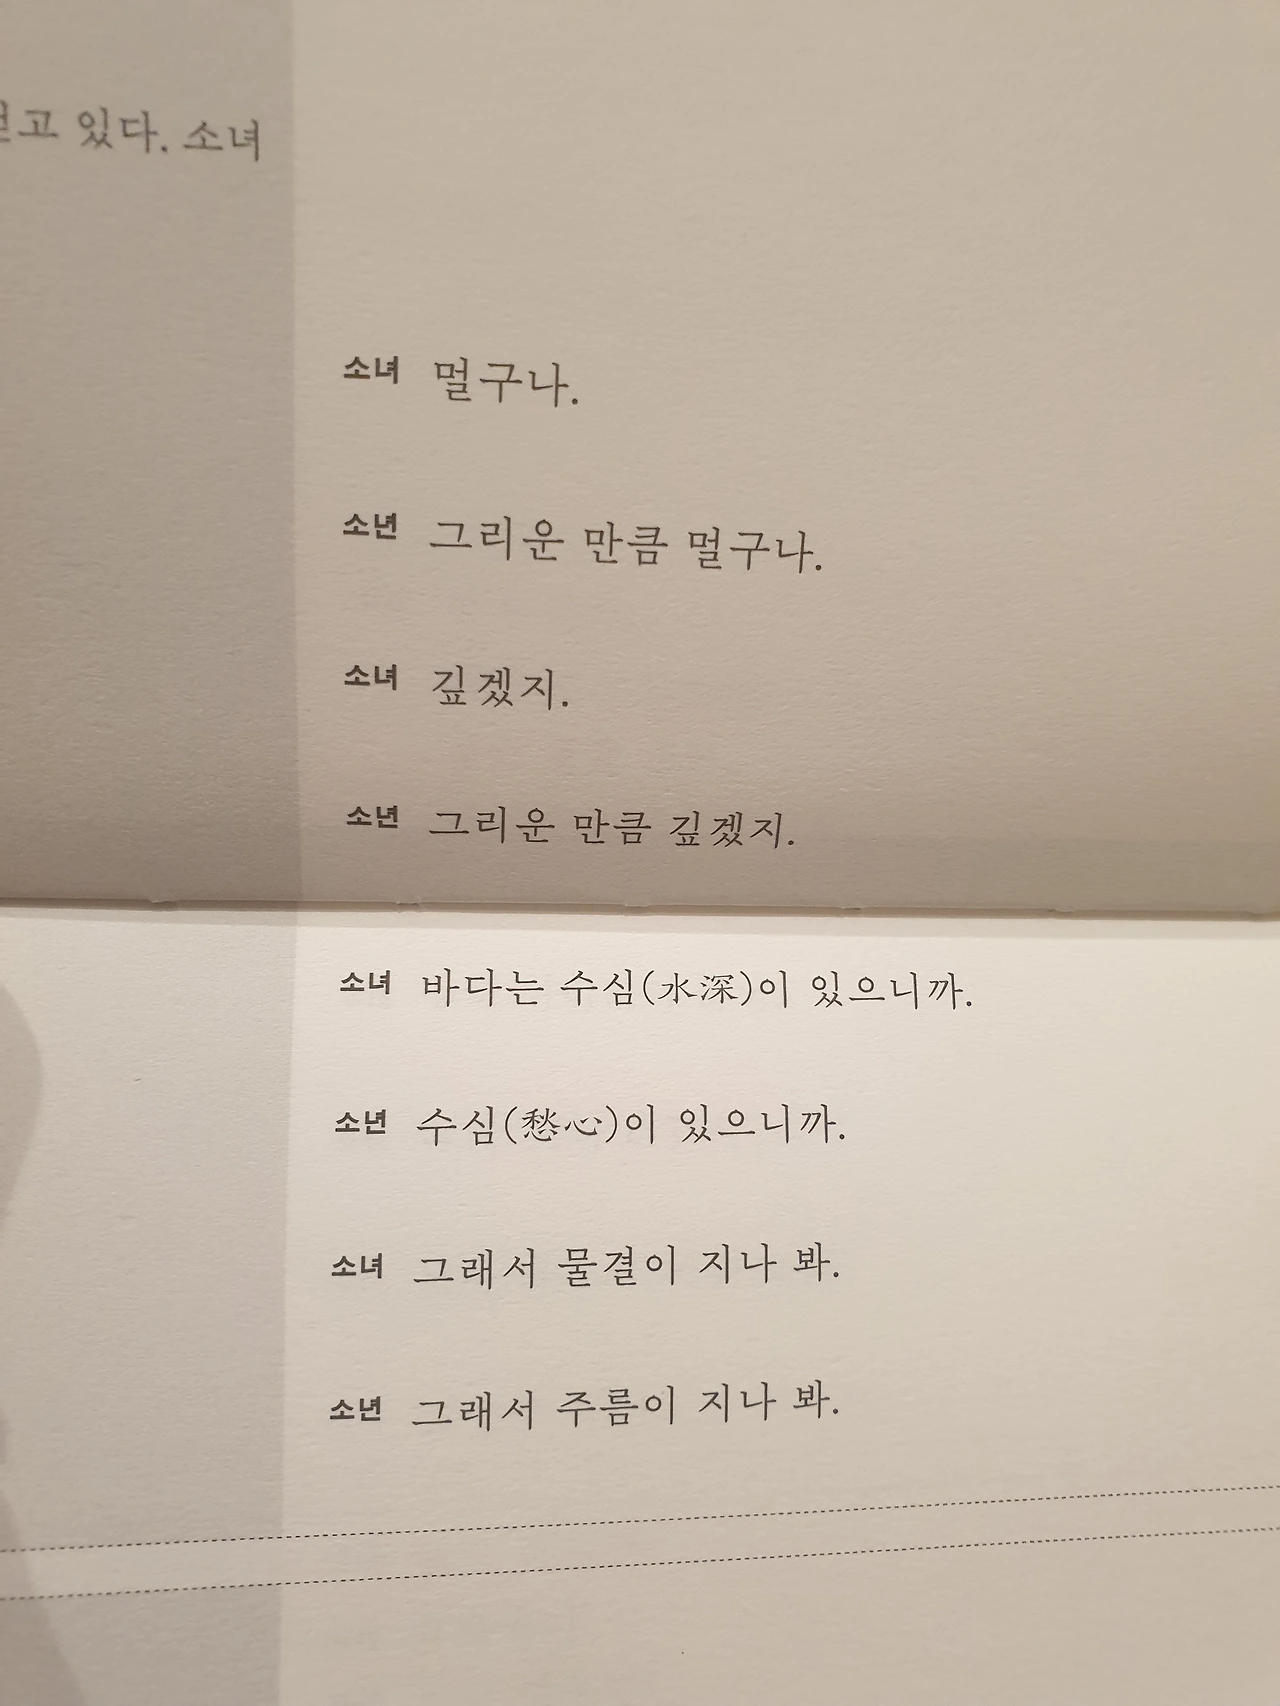 고 있다. 소녀
소녀 멀구나.
소년 그리운 만큼 멀구나.
소녀 깊겠지.
소년 그리운 만큼 깊겠지.
소녀 바다는 수심(水深)이 있으니까.
소년 수심(愁心)이 있으니까.
소녀 그래서 물결이 지나 봐.
소년 그래서 주름이 지나 봐.